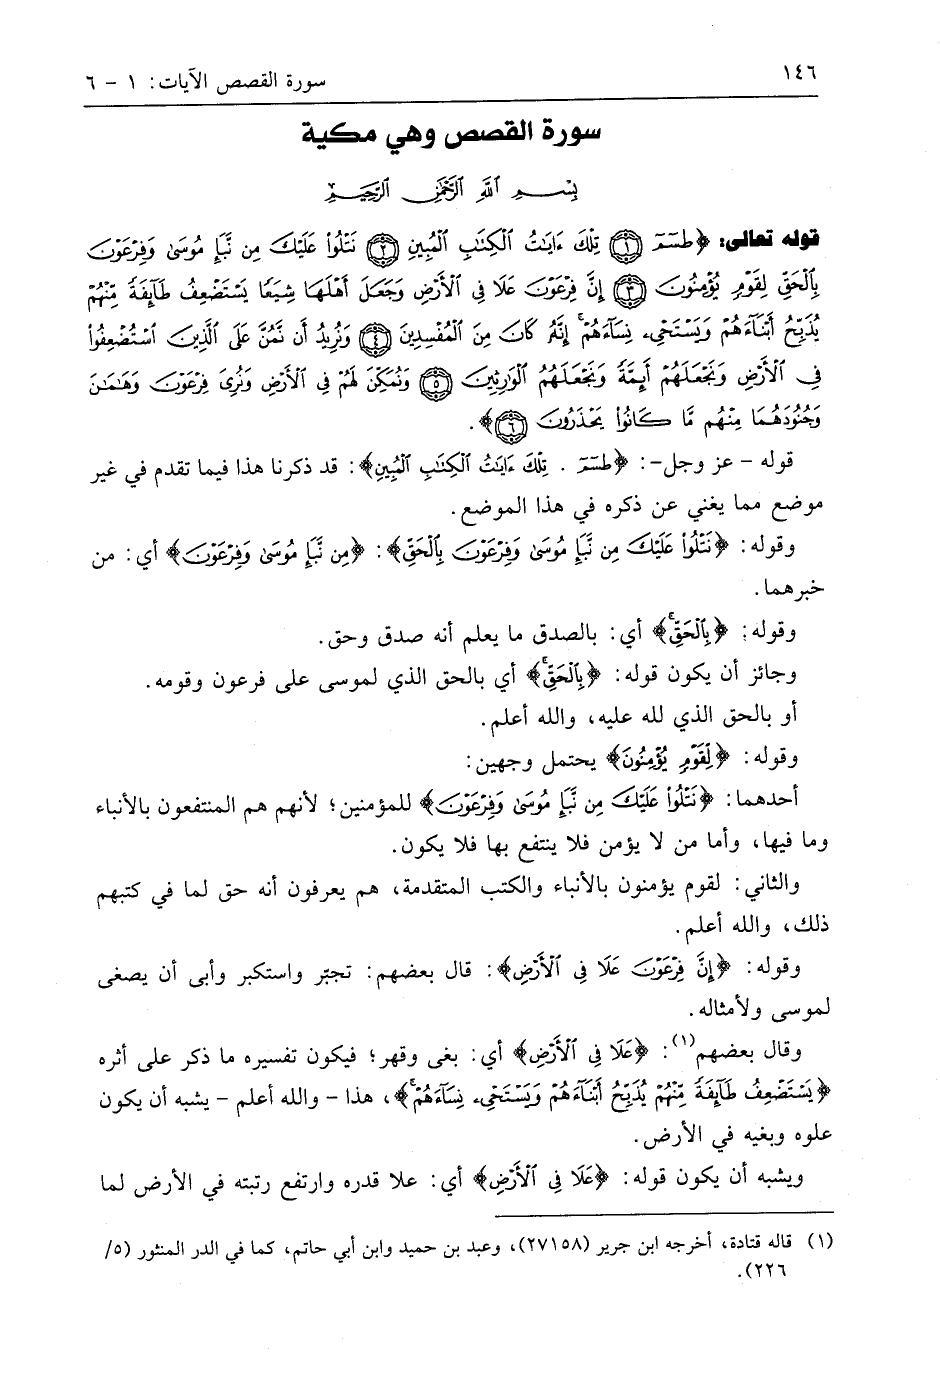 ١٤٦
سورة القصص الآيات: ١ - ٦
سورة القصص وهي مكية
بِسْمِ اللَّهِ الرَّحْمَٰنِ الرَّحِيمِ
قوله تعالى: ﴿طسٓمٓ ﴿١﴾ تِلْكَ ءَايَٰتُ ٱلْكِتَٰبِ ٱلْمُبِينِ ﴿٢﴾ نَتْلُوا۟ عَلَيْكَ مِن نَّبَإِ مُوسَىٰ وَفِرْعَوْنَ
بِٱلْحَقِّ لِقَوْمٍ يُؤْمِنُونَ ﴿٣﴾ إِنَّ فِرْعَوْنَ عَلَا فِى ٱلْأَرْضِ وَجَعَلَ أَهْلَهَا شِيَعًا يَسْتَضْعِفُ طَآئِفَةً مِّنْهُمْ
يُذَبِّحُ أَبْنَآءَهُمْ وَيَسْتَحْىِۦ نِسَآءَهُمْ ۚ إِنَّهُۥ كَانَ مِنَ ٱلْمُفْسِدِينَ ﴿٤﴾ وَنُرِيدُ أَن نَّمُنَّ عَلَى ٱلَّذِينَ ٱسْتُضْعِفُوا۟
فِى ٱلْأَرْضِ وَنَجْعَلَهُمْ أَئِمَّةً وَنَجْعَلَهُمُ ٱلْوَٰرِثِينَ ﴿٥﴾ وَنُمَكِّنَ لَهُمْ فِى ٱلْأَرْضِ وَنُرِىَ فِرْعَوْنَ وَهَٰمَٰنَ
وَجُنُودَهُمَا مِنْهُم مَّا كَانُوا۟ يَحْذَرُونَ ﴿٦﴾﴾.
قوله - عز وجل-: ﴿طسٓمٓ . تِلْكَ ءَايَٰتُ ٱلْكِتَٰبِ ٱلْمُبِينِ﴾: قد ذكرنا هذا فيما تقدم في غير
موضع مما يغني عن ذكره في هذا الموضع.
وقوله: ﴿نَتْلُوا۟ عَلَيْكَ مِن نَّبَإِ مُوسَىٰ وَفِرْعَوْنَ بِٱلْحَقِّ﴾: ﴿مِن نَّبَإِ مُوسَىٰ وَفِرْعَوْنَ﴾ أي: من
خبرهما.
وقوله: ﴿بِٱلْحَقِّ ۚ﴾ أي: بالصدق ما يعلم أنه صدق وحق.
وجائز أن يكون قوله: ﴿بِٱلْحَقِّ ۚ﴾ أي بالحق الذي لموسى على فرعون وقومه.
أو بالحق الذي لله عليه، والله أعلم.
وقوله: ﴿لِقَوْمٍ يُؤْمِنُونَ﴾ يحتمل وجهين:
أحدهما: ﴿نَتْلُوا۟ عَلَيْكَ مِن نَّبَإِ مُوسَىٰ وَفِرْعَوْنَ﴾ للمؤمنين؛ لأنهم هم المنتفعون بالأنباء
وما فيها، وأما من لا يؤمن فلا ينتفع بها فلا يكون.
والثاني: لقوم يؤمنون بالأنباء والكتب المتقدمة، هم يعرفون أنه حق لما في كتبهم
ذلك، والله أعلم.
وقوله: ﴿إِنَّ فِرْعَوْنَ عَلَا فِى ٱلْأَرْضِ﴾: قال بعضهم: تجبّر واستكبر وأبى أن يصغى
لموسى ولأمثاله.
وقال بعضهم(١): ﴿عَلَا فِى ٱلْأَرْضِ﴾ أي: بغى وقهر؛ فيكون تفسيره ما ذكر على أثره
﴿يَسْتَضْعِفُ طَآئِفَةً مِّنْهُمْ يُذَبِّحُ أَبْنَآءَهُمْ وَيَسْتَحْىِۦ نِسَآءَهُمْ ۚ﴾، هذا - والله أعلم - يشبه أن يكون
علوه وبغيه في الأرض.
ويشبه أن يكون قوله: ﴿عَلَا فِى ٱلْأَرْضِ﴾ أي: علا قدره وارتفع رتبته في الأرض لما
(١) قاله قتادة، أخرجه ابن جرير (٢٧١٥٨)، وعبد بن حميد وابن أبي حاتم، كما في الدر المنثور (٥/
٢٢٦).